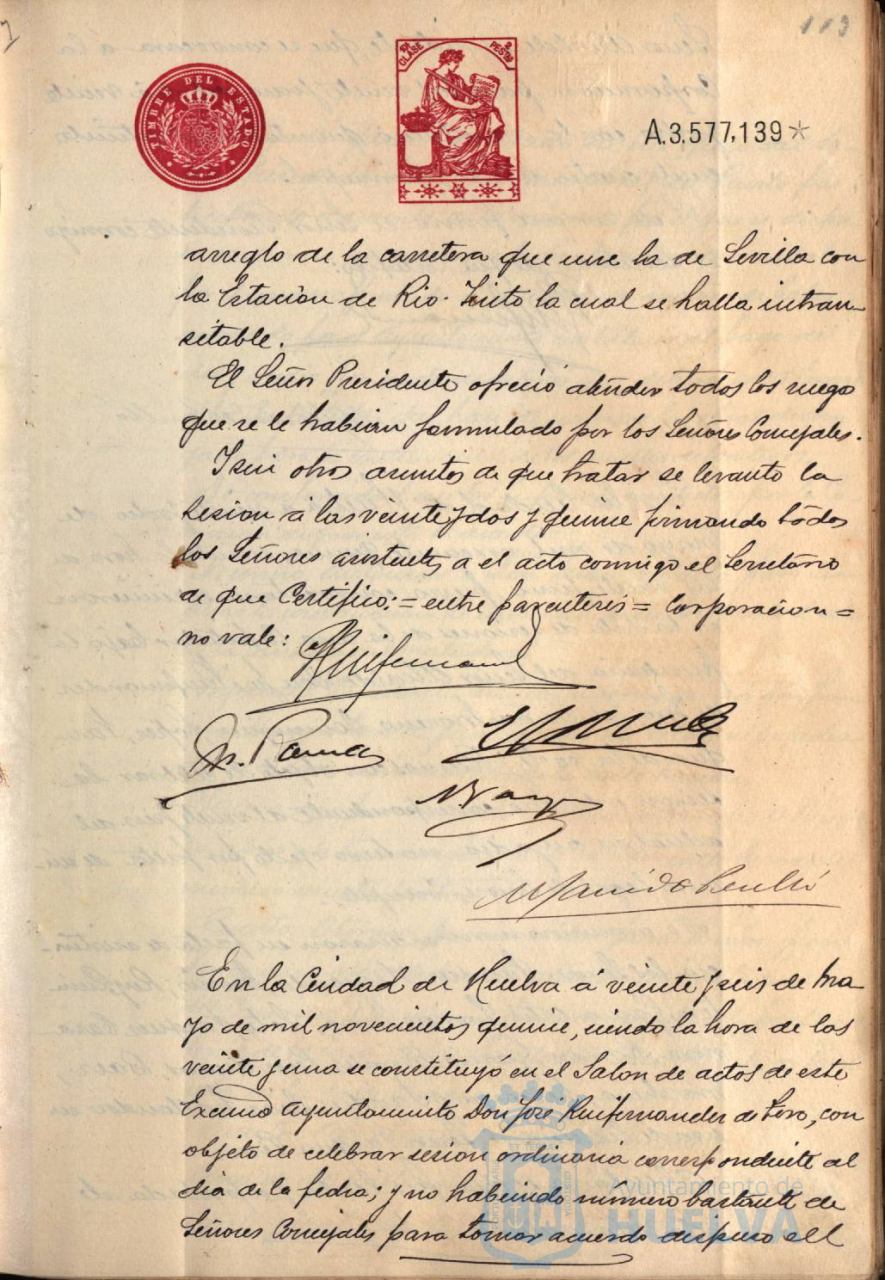 113
TIMBRE DEL ESTADO
CLASE
PESETAS
A.3.577,139
arreglo de la carretera que une la de Sevilla con
la Estación de Rio-Tinto la cual se halla intran-
sitable.
El Señor Presidente ofreció atender todos los ruego
que se le habian formulado por los Señores Concejales.
I sin otros asuntos de que tratar se levanto la
sesion á las veinte y dos y quince firmando todos
los Señores asistentes a el acto conmigo el Secretario
de que Certifico: = entre parentesis = Corporacion =
no vale:
En la Ciudad de Huelva á veinte y seis de ma
yo de mil novecientos quince, siendo la hora de las
veinte y una se constituyó en el Salon de actos de este
Excmo Ayuntamiento Don José Ruifernandez de Toro, con
objeto de celebrar sesion ordinaria correspondiente al
dia de la fecha; y no habiendo número bastante de
Señores Concejales para tomar acuerdo dispuso el
Ayuntamiento de
HUELVA